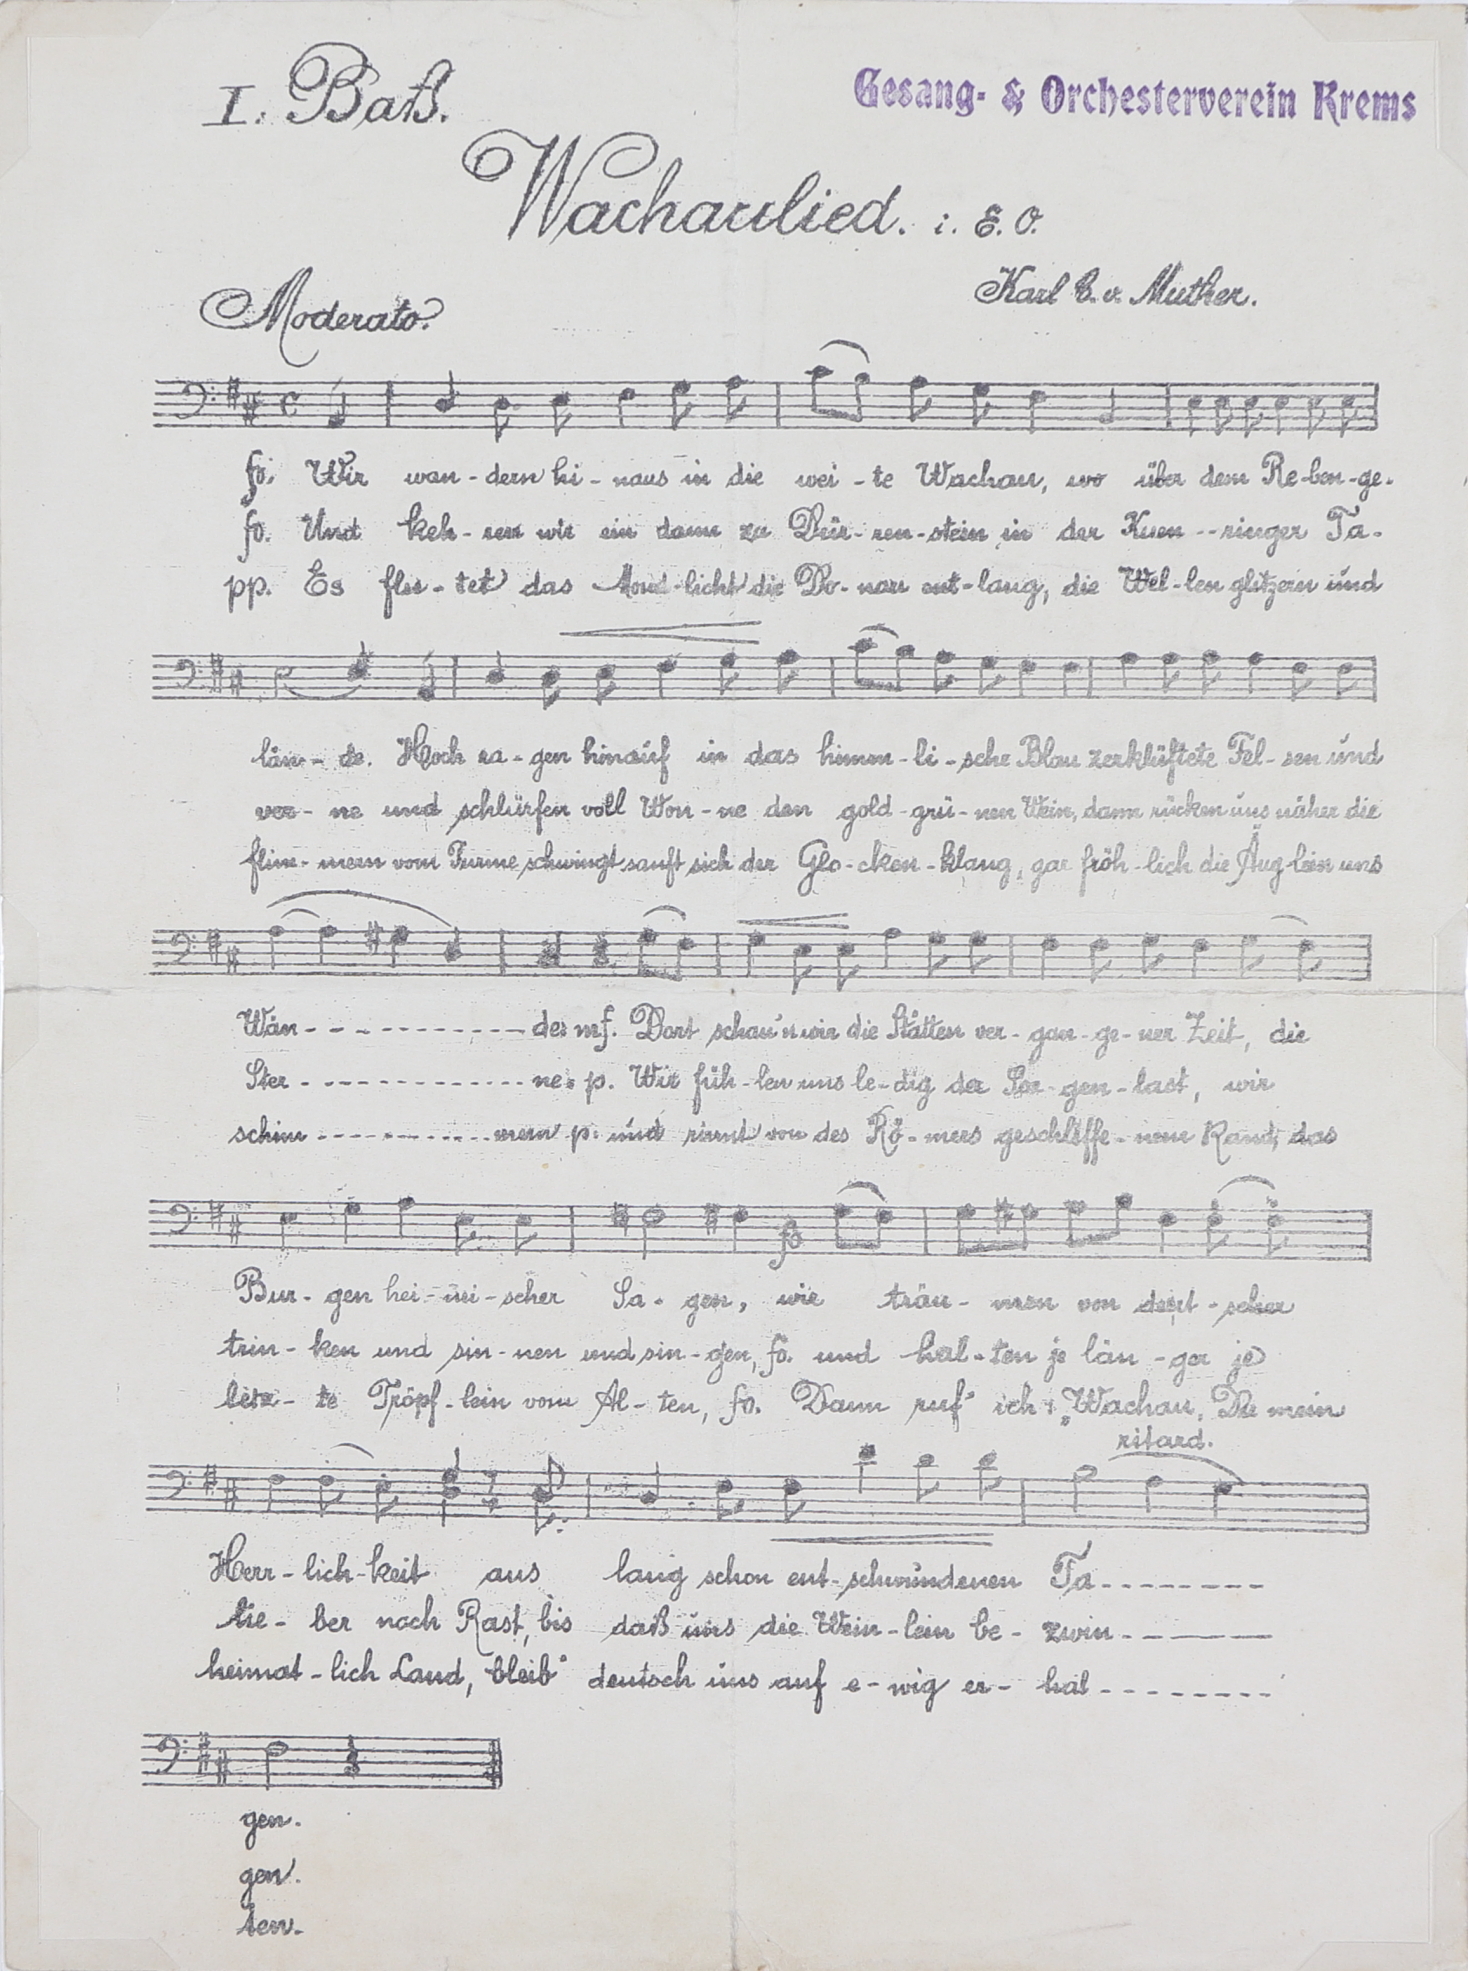 I. Baß.
Gesang- & Orchesterverein Krems
Wachaulied. i. E. O.
Karl B. v. Muther.
Moderato.
fo. Wir wan-dern hi-naus in die wei-te Wachau, wo über dem Re-ben-ge-
fo. Und keh-ren wir ein dann zu Dür-ren-stein in der Kuen--ringer Ta-
pp. Es flu-tet das Mond-licht die Do-nau ent-lang, die Wel-len glitzern und
län-de. Hoch ra-gen hinauf in das himm-li-sche Blau zerklüftete Fel-sen und
ver-ne und schlürfen voll Won-ne den gold-grü-nen Wein, dann rücken uns näher die
flim-mern vom Turme schwingt sanft sich der Glo-cken-klang, gar fröh-lich die Äug-lein uns
Wän- - - - - - - - - - - de: mf. Dort schau'n wir die Stätten ver-gan-ge-ner Zeit, die
Ster- - - - - - - - - - - ne: p. Wir füh-len uns le-dig der Sor-gen-last, wir
schim- - - - - - - - - - mern p: und rinnt von des Rö-mers geschliffe-nem Rand, das
Bur-gen hei-mi-scher Sa-gen, wir träu-men von deut-scher
fo
trin-ken und sin-nen und sin-gen, fo. und hal-ten je län-ger je
letz-te Tröpf-lein vom Al-ten, fo. Dann ruf' ich: „Wachau, Du mein
ritard.
Herr-lich-keit aus lang schon ent-schwundenen Ta- - - - - - - -
lie-ber noch Rast, bis daß uns die Wein-lein be-zwin- - - - -
heimat-lich Land, bleib' deutsch uns auf e-wig er-hal- - - - - - - -
gen.
gen.
ten.